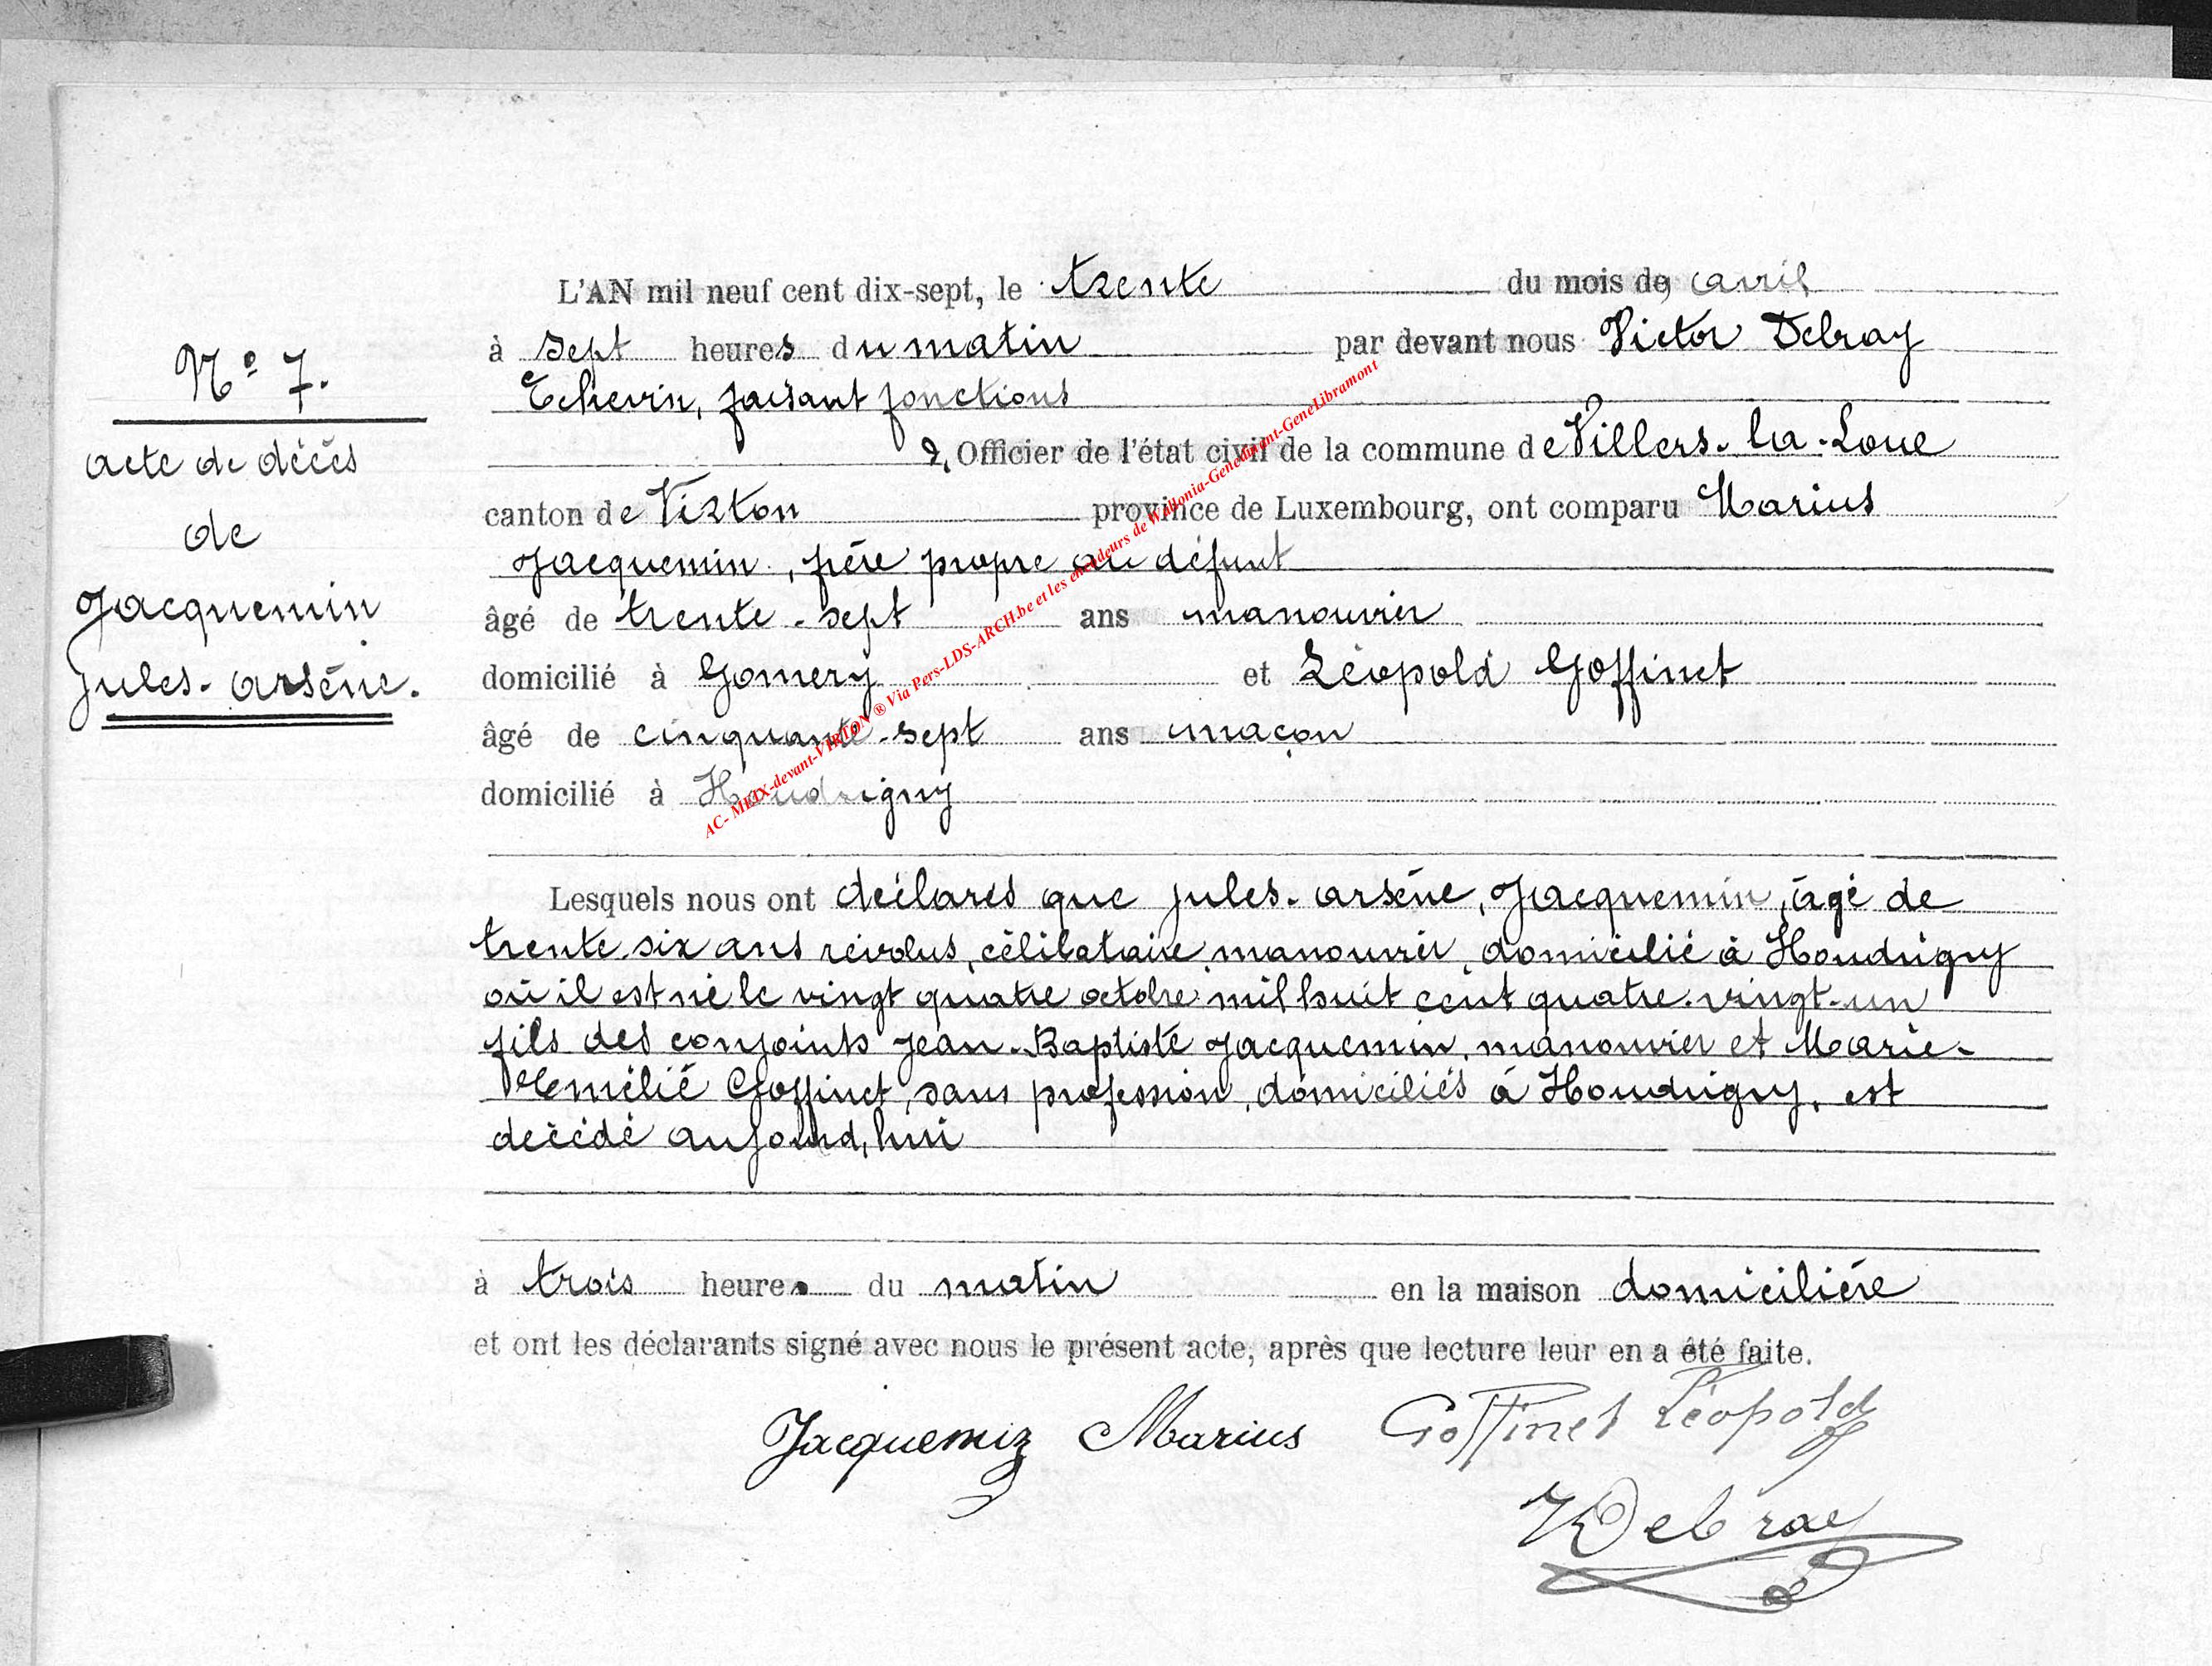 N° 7.
acte de décès
de
Jacquemin
Jules-arsène.
L'AN mil neuf cent dix-sept, le trente du mois de, avril
à sept heures du matin par devant nous Victor Delray
Echevin, faisant fonctions
d, Officier de l'état civil de la commune de Villers-la-Loue
canton de Virton province de Luxembourg, ont comparu Marius
Jacquemin, frère propre au défunt
âgé de trente-sept ans manouvrier
domicilié à Gomery et Léopold Goffinet
âgé de cinquante-sept ans maçon
domicilié à Houdrigny
Lesquels nous ont déclarés que Jules-arsène, Jacquemin, âgé de
trente-six ans révolus, célibataire, manouvrier, domicilié à Houdrigny
où il est né le vingt quatre octobre mil huit cent quatre-vingt-un
fils des conjoints Jean-Baptiste Jacquemin, manouvrier et Marie-
Goffinet, sans profession, domiciliés à Houdrigny, est
décédé aujourd,hui
à trois heures du matin en la maison domicilière
et ont les déclarants signé avec nous le présent acte, après que lecture leur en a été faite.
Jacquemin Marius Goffinet Léopold
VDelray
AC- MEIX-devant-VIRTON ® Via Pers-LDS-ARCH.be et les encodeurs de Wallonia-GeneDinant-GeneLibramont